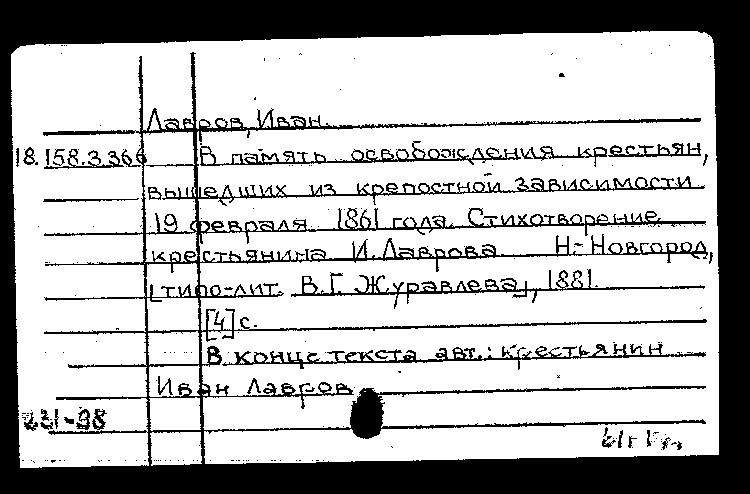 Лавров, Иван.
18.158.3.366 В память освобождения крестьян,
вышедших из крепостной зависимости
19 февраля 1861 года. Стихотворение
крестьянина И. Лаврова Н.-Новгород,
[типо-лит. В.Г. Журавлева], 1881.
[4] с.
В конце текста авт.: крестьянин
Иван Лавров
231-98